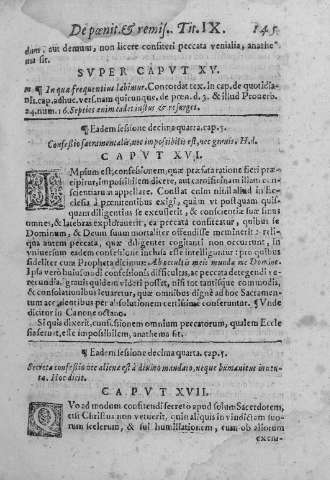 De pœnit. & remiss. Tit. IX. 145
dam, aut demum, non licere confiteri peccata venialia, anathe
ma sit.
SVPER CAPVT XV.
¶ In qua frequentius labimur. Concordat tex. in cap. de quotidia-
nis. cap. adhuc. vers. nam quicunque. de pœn. d. 3. & illud Prouerb.
24. num. 16. Septies enim cadet iustus & resurget.
¶ Eadem sessione decima quarta. cap. 5.
Confessio sacramentalis, nec impossibilis est, nec grauis, H. d.
CAPVT XVI.
IMpsum est, confessionem, quæ præfata ratione fieri præ-
cipitur, impossibilem dicere, aut carnificinam illam con-
scientiarum appellare. Constat enim nihil aliud in Ec-
clesia à pœnitentibus exigi, quàm vt postquam quis-
quam diligentius se excusserit, & conscientiæ suæ sinus
omnes, & latebras explorauerit, ea peccata confiteatur, quibus se
Dominum, & Deum suum mortaliter offendisse meminerit: reli-
qua autem peccata, quæ diligenter cogitanti non occurrunt, in
vniuersum eadem confessione inclusa esse intelliguntur: pro quibus
fideliter cum Propheta dicimus: Ab occultis meis munda me Domine.
Ipsa verò huiusmodi confessionis difficultas, ac peccata detegendi ve-
recundia, grauis quidem videri posset, nisi tot tantisque commodis,
& consolationibus leuaretur, quæ omnibus dignè ad hoc Sacramen-
tum accedentibus per absolutionem certissimè conferuntur. ¶ Vnde
dicitur in Canone octauo.
Si quis dixerit, confessionem omnium peccatorum, qualem Eccle
sia seruat, esse impossibilem, anathema sit.
¶ Eadem sessione decima quarta. cap. 5.
Secreta confessio nec aliena est à diuino mandato, neque humanitus inuen-
ta. Hoc dicit.
CAPVT XVII.
QVo ad modum confitendi secretò apud solum Sacerdotem,
etsi Christus non vetuerit, quin aliquis in vindictam suo-
rum scelerum, & sui humiliationem, cum ob aliorum
exem-